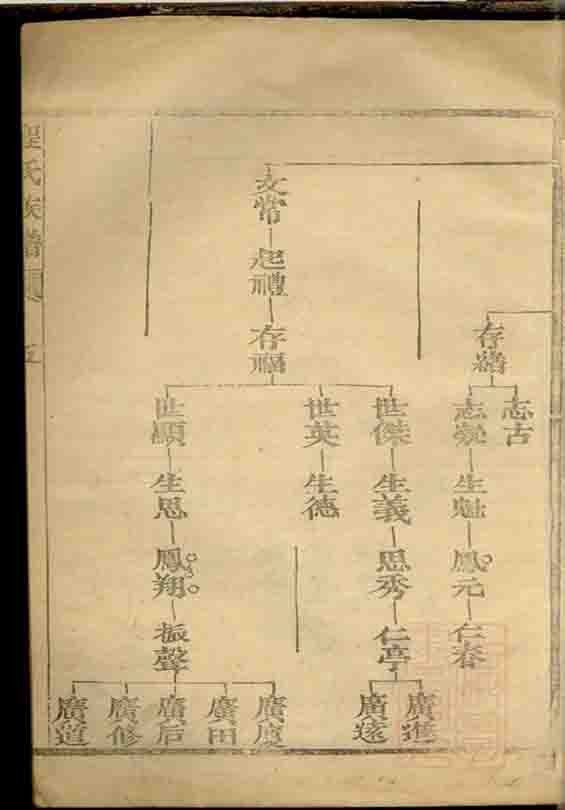 存
志古
志
生
鳳元
仁春
文常
起禮
存福
世傑
生義
思秀
仁亭
廣進
廣遂
世英
生德
世顯
生思
鳳翔
振聲
廣慶
廣田
廣后
廣修
廣道
氏族譜
五